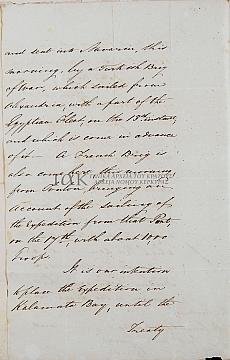 and sent into Navarin, this
morning, by a Turkish Brig
of War, which sailed from
Alexandria, with a part of the
Egyptian Fleet, on the 13th instant,
and which is come in advance
of it – A French Brig is
also
from Toulon, bringing an
account of the sailing of
the Expedition from that Port,
on the 17th, with about
Troops.
It is our intention
to place the Expedition in
Kalamata Bay, until the
Treaty
ΓΕΝΙΚΑ ΑΡΧΕΙΑ ΤΟΥ ΚΡΑΤΟΥΣ
ΑΡΧΕΙΑ ΝΟΜΟΥ ΚΕΡΚΥΡΑΣ